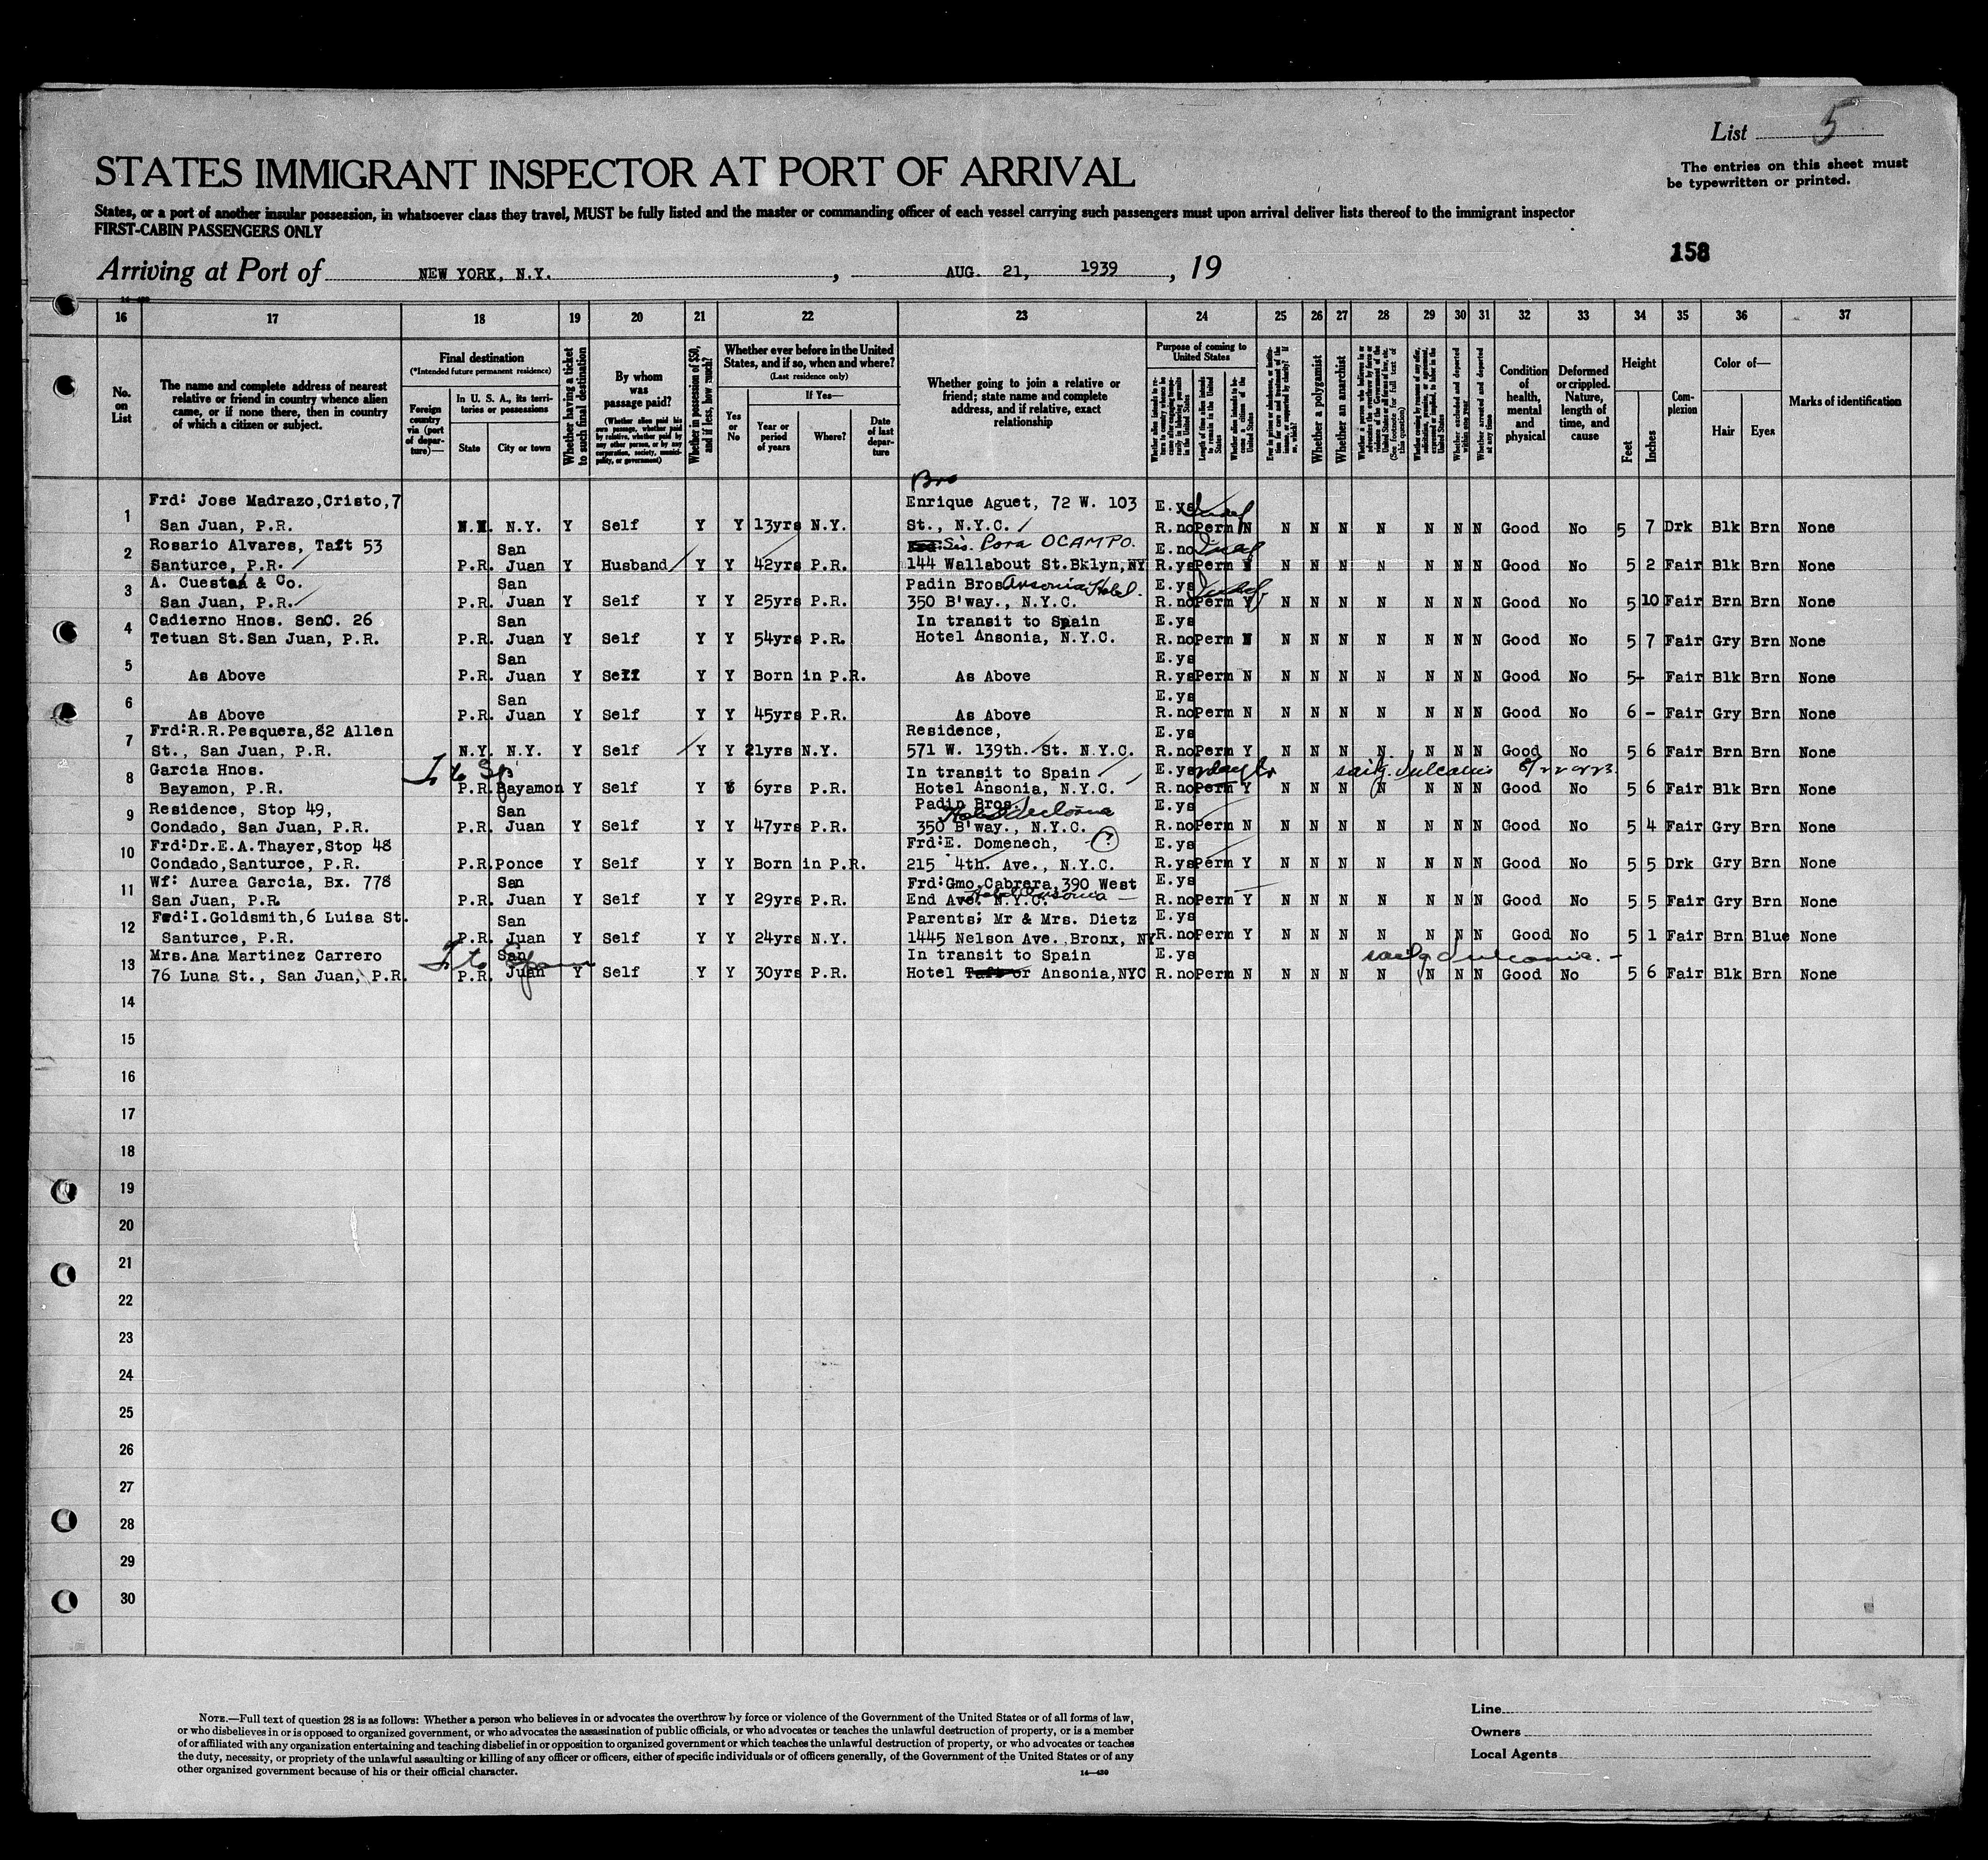 List 5
The entries on this sheet must
be typewritten or printed.
STATES IMMIGRANT INSPECTOR AT PORT OF ARRIVAL
States, or a port of another insular possession, in whatsoever class they travel, MUST be fully listed and the master or commanding officer of each vessel carrying such passengers must upon arrival deliver lists thereof to the immigrant inspector
FIRST-CABIN PASSENGERS ONLY
158
Arriving at Port of NEW YORK, N.Y. , AUG. 21, 1939 , 19
16 17 18 19 20 21 22 23 24 25 26 27 28 29 30 31 32 33 34 35 36 37
No. on List
The name and complete address of nearest relative or friend in country whence alien came, or if none there, then in country of which a citizen or subject.
Final destination
(*Intended future permanent residence)
Foreign country via (port of departure)—
In U. S. A., its territories or possessions
State
City or town
Whether having a ticket to such final destination
By whom was passage paid?
(Whether alien paid his own passage, whether paid by relative, whether paid by any other person, or by any corporation, society, municipality, or government)
Whether in possession of $50, and if less, how much?
Whether ever before in the United States, and if so, when and where?
(Last residence only)
Yes or No
If Yes—
Year or period of years
Where?
Date of last departure
Whether going to join a relative or friend; state name and complete address, and if relative, exact relationship
Purpose of coming to United States
Length of time alien intends to remain in the United States
Whether alien intends to become a citizen of the United States
Whether a polygamist
Whether an anarchist
(See footnote for full text of this question)
Whether arrested and deported at any time
Condition of health, mental and physical
Deformed or crippled. Nature, length of time, and cause
Height
Feet
Inches
Complexion
Color of—
Hair
Eyes
Marks of identification
Bro
Frd: Jose Madrazo,Cristo,7 Enrique Aguet, 72 W. 103 E.ys
1 San Juan, P.R. N.Y. N.Y. Y Self Y Y 13yrs N.Y. St., N.Y.C. R.no Perm N N N N N N N N Good No 5 7 Drk Blk Brn None
Rosario Alvares, Taft 53 San Sis. Pora OCAMPO. E.no
2 Santurce, P.R. P.R. Juan Y Husband Y Y 42yrs P.R. 144 Wallabout St.Bklyn,NY R.ys Perm N N N N N N N Good No 5 2 Fair Blk Brn None
A. Cuesta & Co. San Padin Bros Ansonia Hotel. E.ys
3 San Juan, P.R. P.R. Juan Y Self Y Y 25yrs P.R. 350 B'way., N.Y.C. R.no Perm Y N N N N N N N Good No 5 10 Fair Brn Brn None
Cadierno Hnos. SenC. 26 San In transit to Spain E.ys
4 Tetuan St.San Juan, P.R. P.R. Juan Y Self Y Y 54yrs P.R. Hotel Ansonia, N.Y.C. R.no Perm N N N N N N N N Good No 5 7 Fair Gry Brn None
San E.ys
5 As Above P.R. Juan Y Self Y Y Born in P.R. As Above R.ys Perm N N N N N N N N Good No 5- Fair Blk Brn None
San E.ys
6 As Above P.R. Juan Y Self Y Y 45yrs P.R. As Above R.no Perm N N N N N N N N Good No 6 - Fair Gry Brn None
Frd:R.R.Pesquera,82 Allen Residence, E.ys
7 St., San Juan, P.R. N.Y. N.Y. Y Self Y Y 21yrs N.Y. 571 W. 139th. St. N.Y.C. R.no Perm Y N N N N N N N Good No 5 6 Fair Brn Brn None
Garcia Hnos. In transit to Spain E.ys
8 Bayamon, P.R. P.R. Bayamon Y Self Y 6yrs P.R. Hotel Ansonia, N.Y.C. R.no Perm Y N N N N N N N Good No 5 6 Fair Blk Brn None
Residence, Stop 49, San Padin Bros. E.ys
9 Condado, San Juan, P.R. P.R. Juan Y Self Y Y 47yrs P.R. 350 B'way., N.Y.C. R.no Perm N N N N N N N N Good No 5 4 Fair Gry Brn None
Frd:Dr.E.A.Thayer,Stop 48 Frd:E. Domenech, (?) E.ys
10 Condado,Santurce, P.R. P.R. Ponce Y Self Y Y Born in P.R. 215 4th. Ave., N.Y.C. R.ys Perm Y N N N N N N N Good No 5 5 Drk Gry Brn None
Wf: Aurea Garcia, Bx. 778 San Frd:Gmo.Cabrera,390 West E.ys
11 San Juan, P.R. P.R. Juan Y Self Y Y 29yrs P.R. End Ave. N.Y.C. Hotel Ansonia R.no Perm Y N N N N N N N Good No 5 5 Fair Gry Brn None
Frd:I.Goldsmith,6 Luisa St. San Parents; Mr & Mrs. Dietz E.ys
12 Santurce, P.R. P.R. Juan Y Self Y Y 24yrs N.Y. 1445 Nelson Ave. Bronx, NY R.no Perm Y N N N N N N N Good No 5 1 Fair Brn Blue None
Mrs.Ana Martinez Carrero San In transit to Spain E.ys
13 76 Luna St., San Juan, P.R. P.R. Juan Y Self Y Y 30yrs P.R. Hotel Taft or Ansonia,NYC R.no Perm N N N N N N N N Good No 5 6 Fair Blk Brn None
14
15
16
17
18
19
20
21
22
23
24
25
26
27
28
29
30
NOTE.—Full text of question 28 is as follows: Whether a person who believes in or advocates the overthrow by force or violence of the Government of the United States or of all forms of law,
or who disbelieves in or is opposed to organized government, or who advocates the assassination of public officials, or who advocates or teaches the unlawful destruction of property, or is a member
of or affiliated with any organization entertaining and teaching disbelief in or opposition to organized government or which teaches the unlawful destruction of property, or who advocates or teaches
the duty, necessity, or propriety of the unlawful assaulting or killing of any officer or officers, either of specific individuals or of officers generally, of the Government of the United States or of any
other organized government because of his or their official character.
14—430
Line
Owners
Local Agents